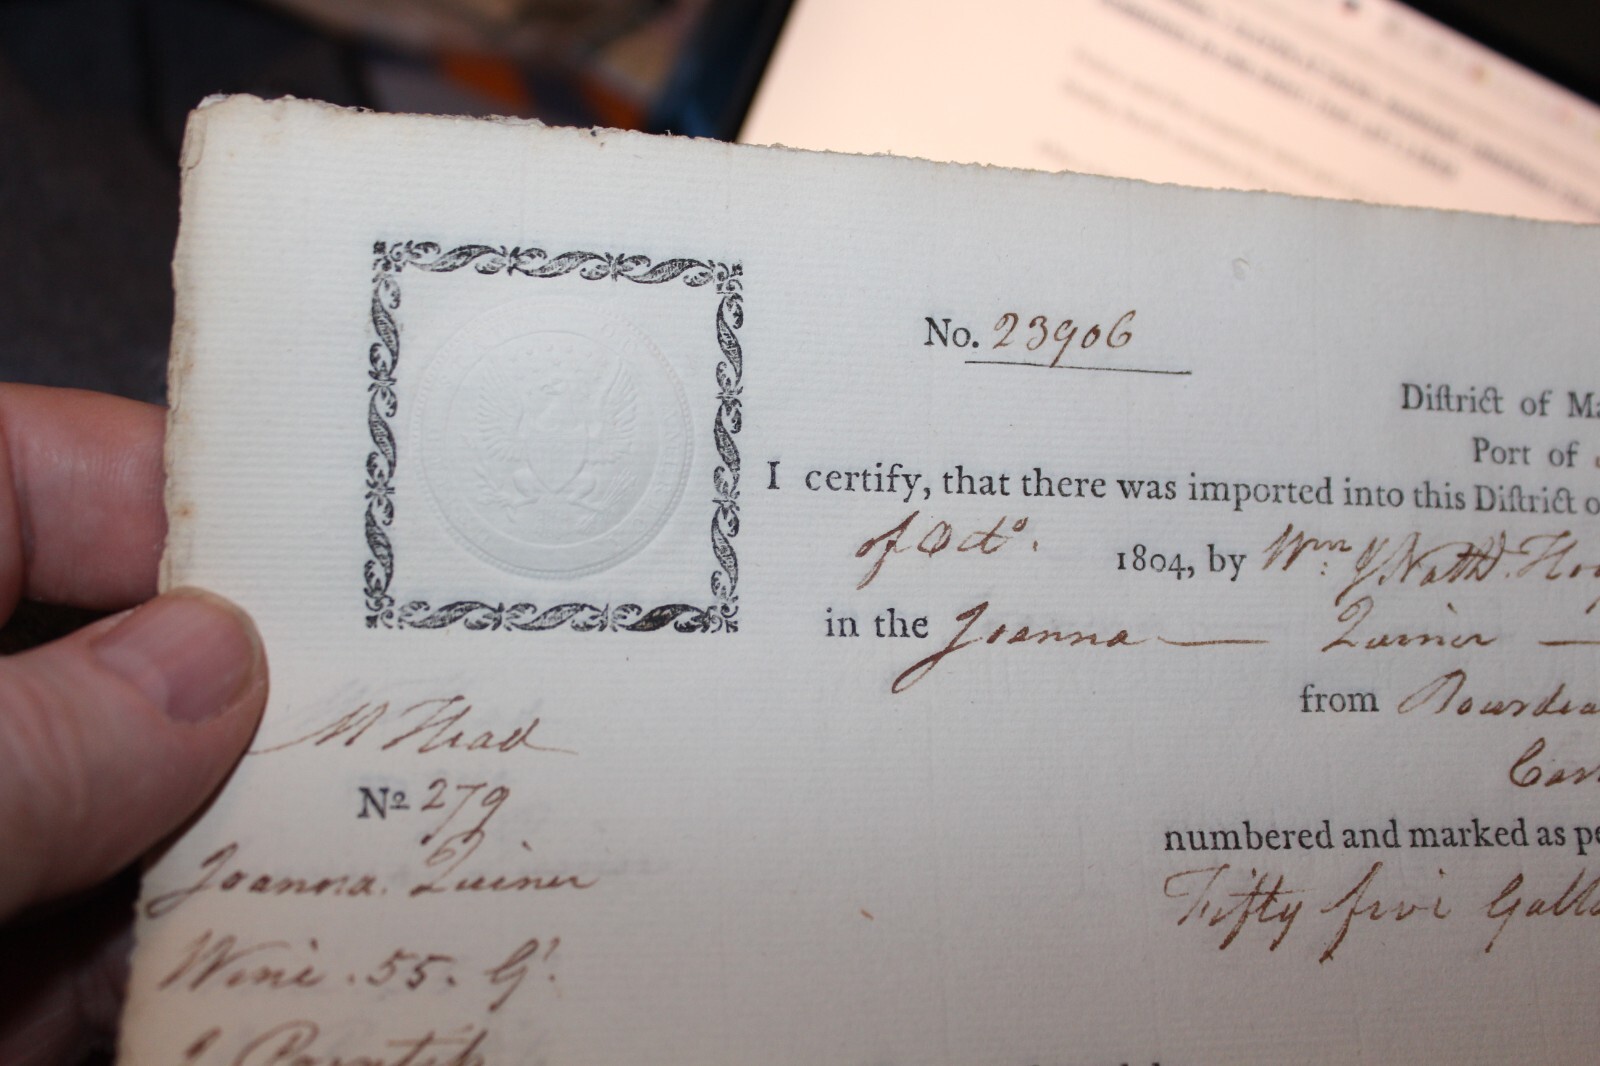 No. 23906
Diſtrict of Ma
Port of
I certify, that there was imported into this Diſtrict o
of Octo. 1804, by Wm. & Nathl. Hoo
in the Joanna — Quiner —
from Bourdea
numbered and marked as pe
Fifty five Gallo
M Head
No 279
Joanna. Quiner
Wine . 55. Gs.